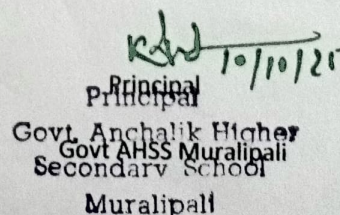 10/10/25
Principal
Principal
Govt. Anchalik Higher
Govt AHSS Muralipali
Secondary School
Muralipali